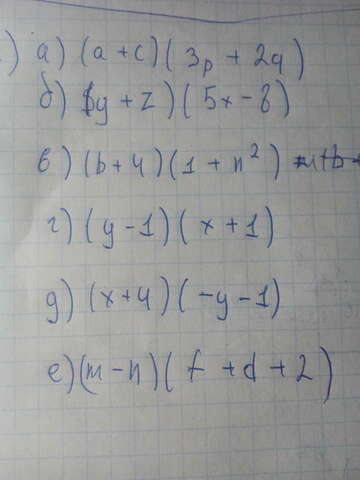 ) а) (a + c)(3p + 2q)
б) (y + z)(5x - 8)
в) (b + 4)(1 + n²)
г) (y - 1)(x + 1)
д) (x + 4)(-y - 1)
е) (m - n)(f + d + 2)